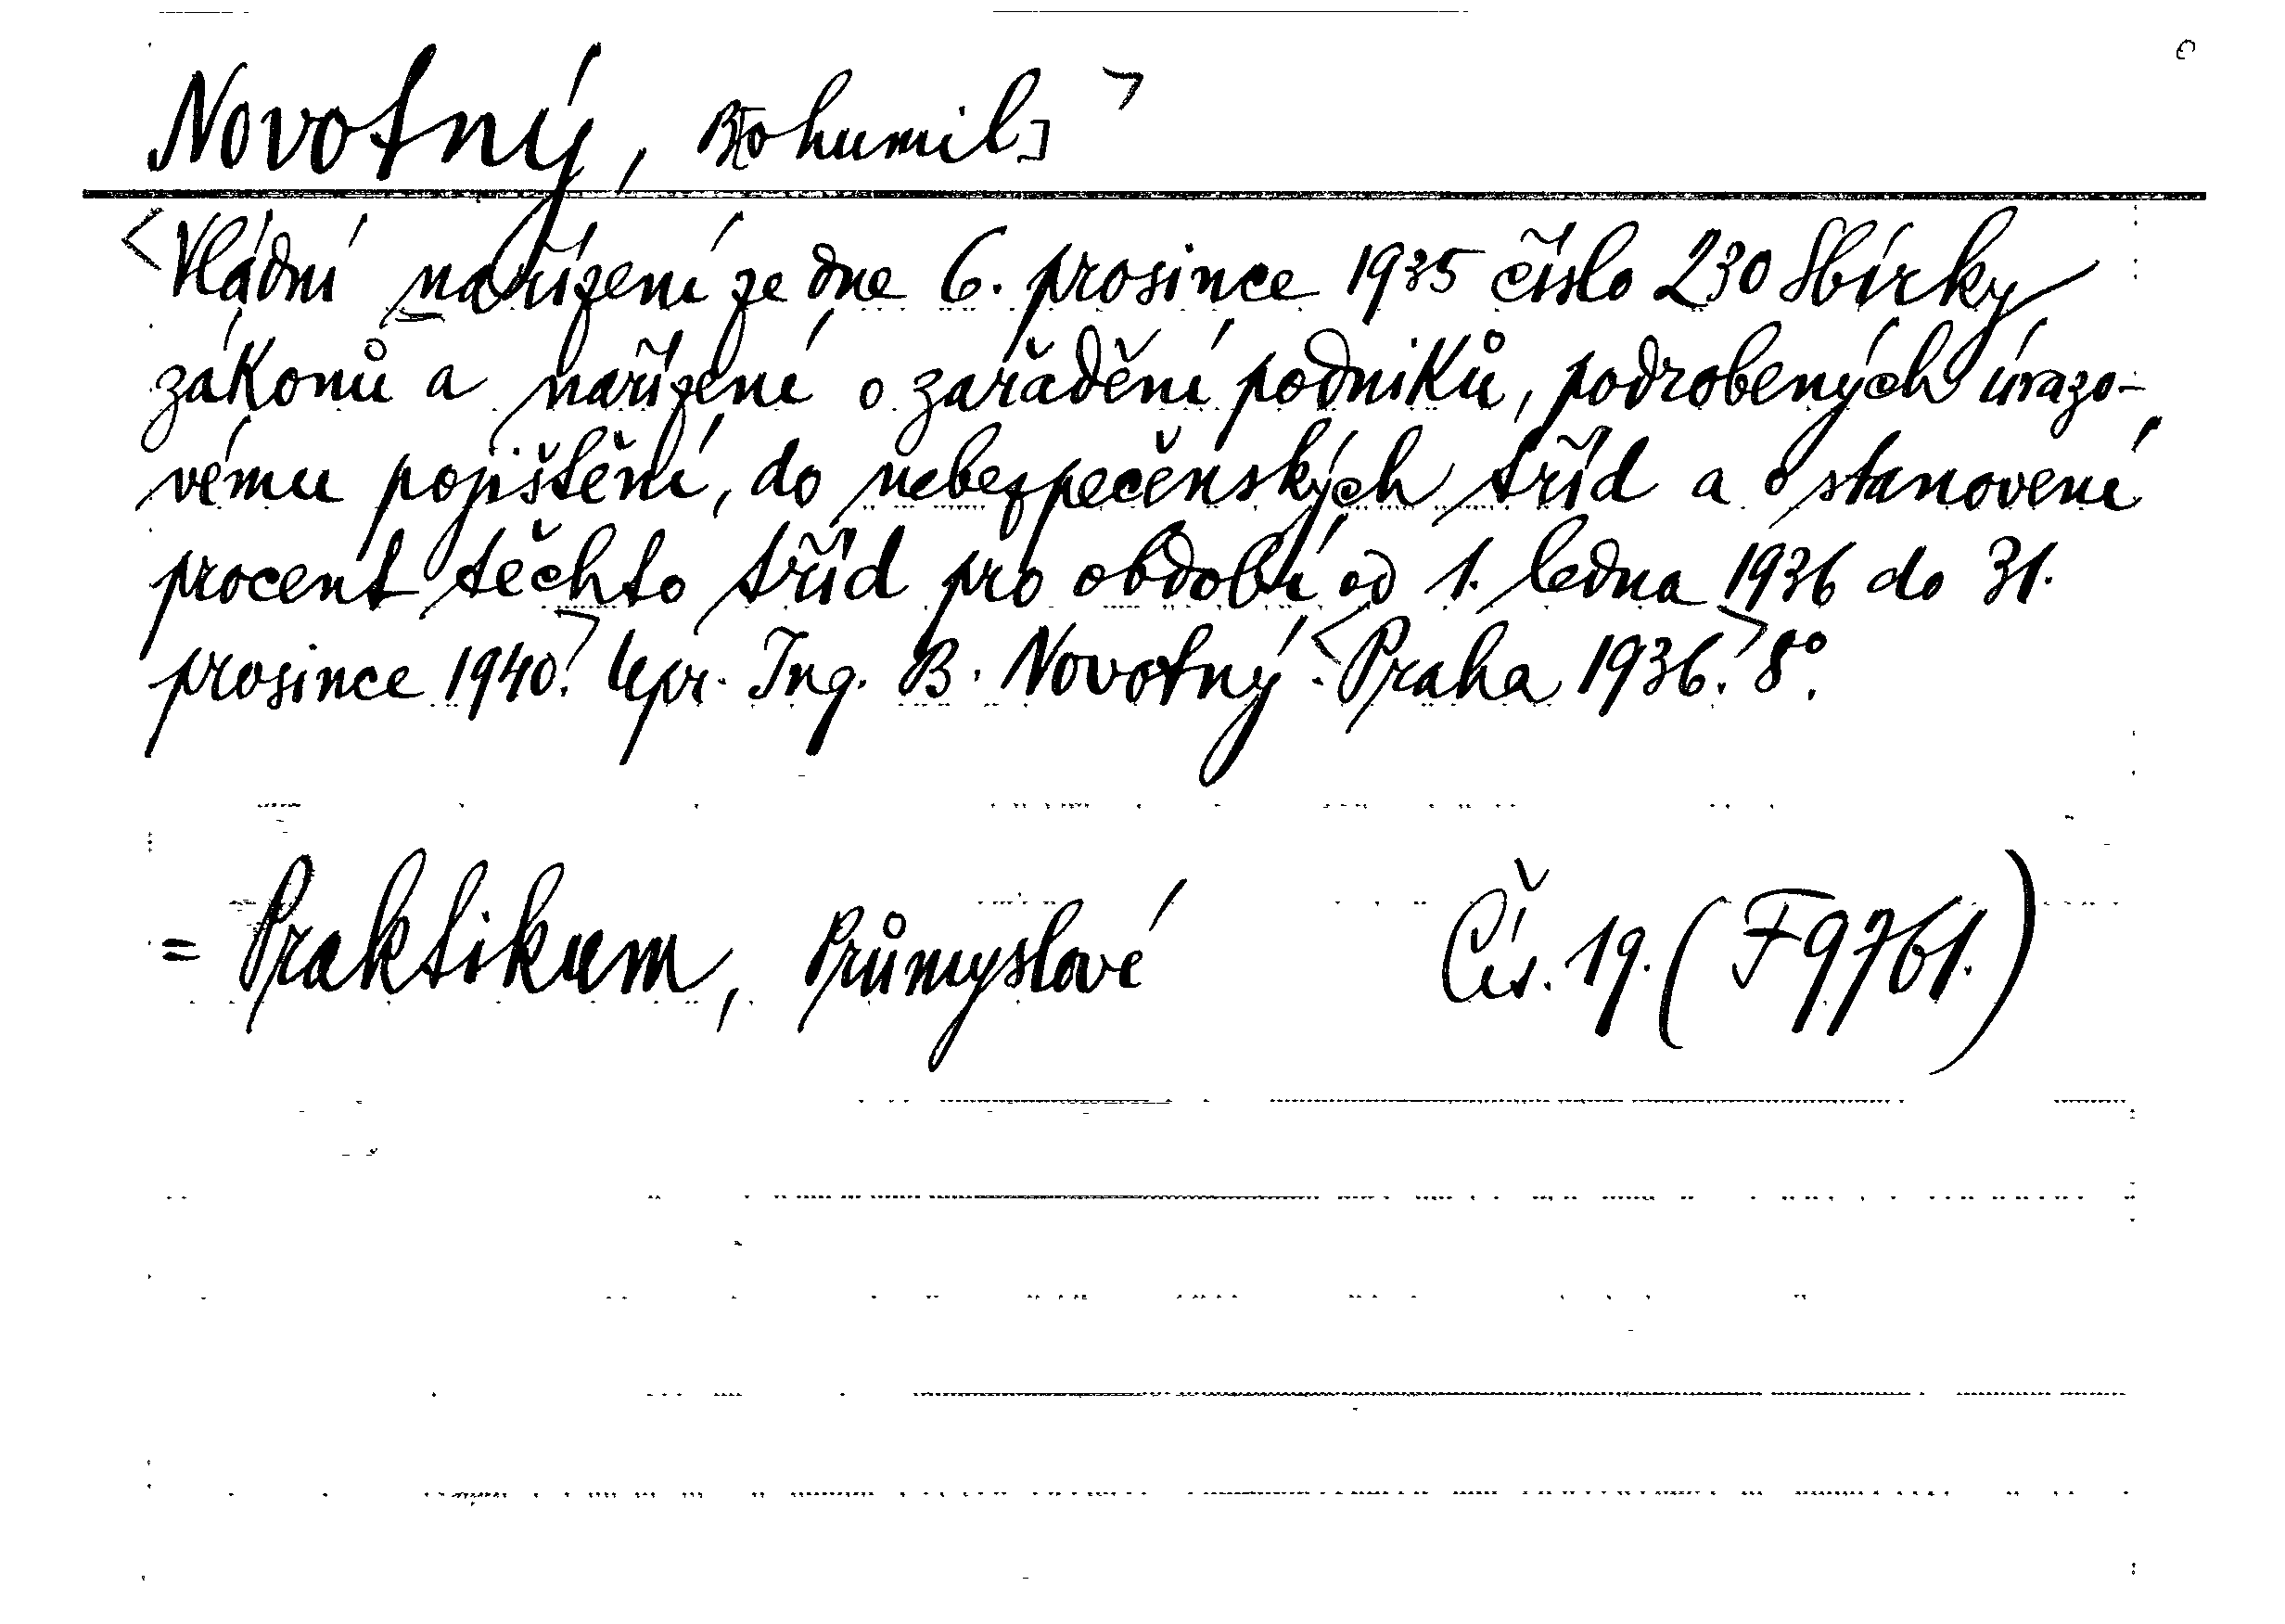 Novotný, B[ohumil]
Vládní nařízení ze dne 6. prosince 1935 číslo 230 Sbírky
zákonů a nařízení o zařadění podniků, podrobených úrazo-
vému pojištění, do nebezpečenských tříd a o stanovení
procent těchto tříd pro období od 1. ledna 1936 do 31.
prosince 1940. Upr. Ing. B. Novotný. Praha 1936. 8°.
= Praktikum, Průmyslové Čís. 19. (F 9761.)